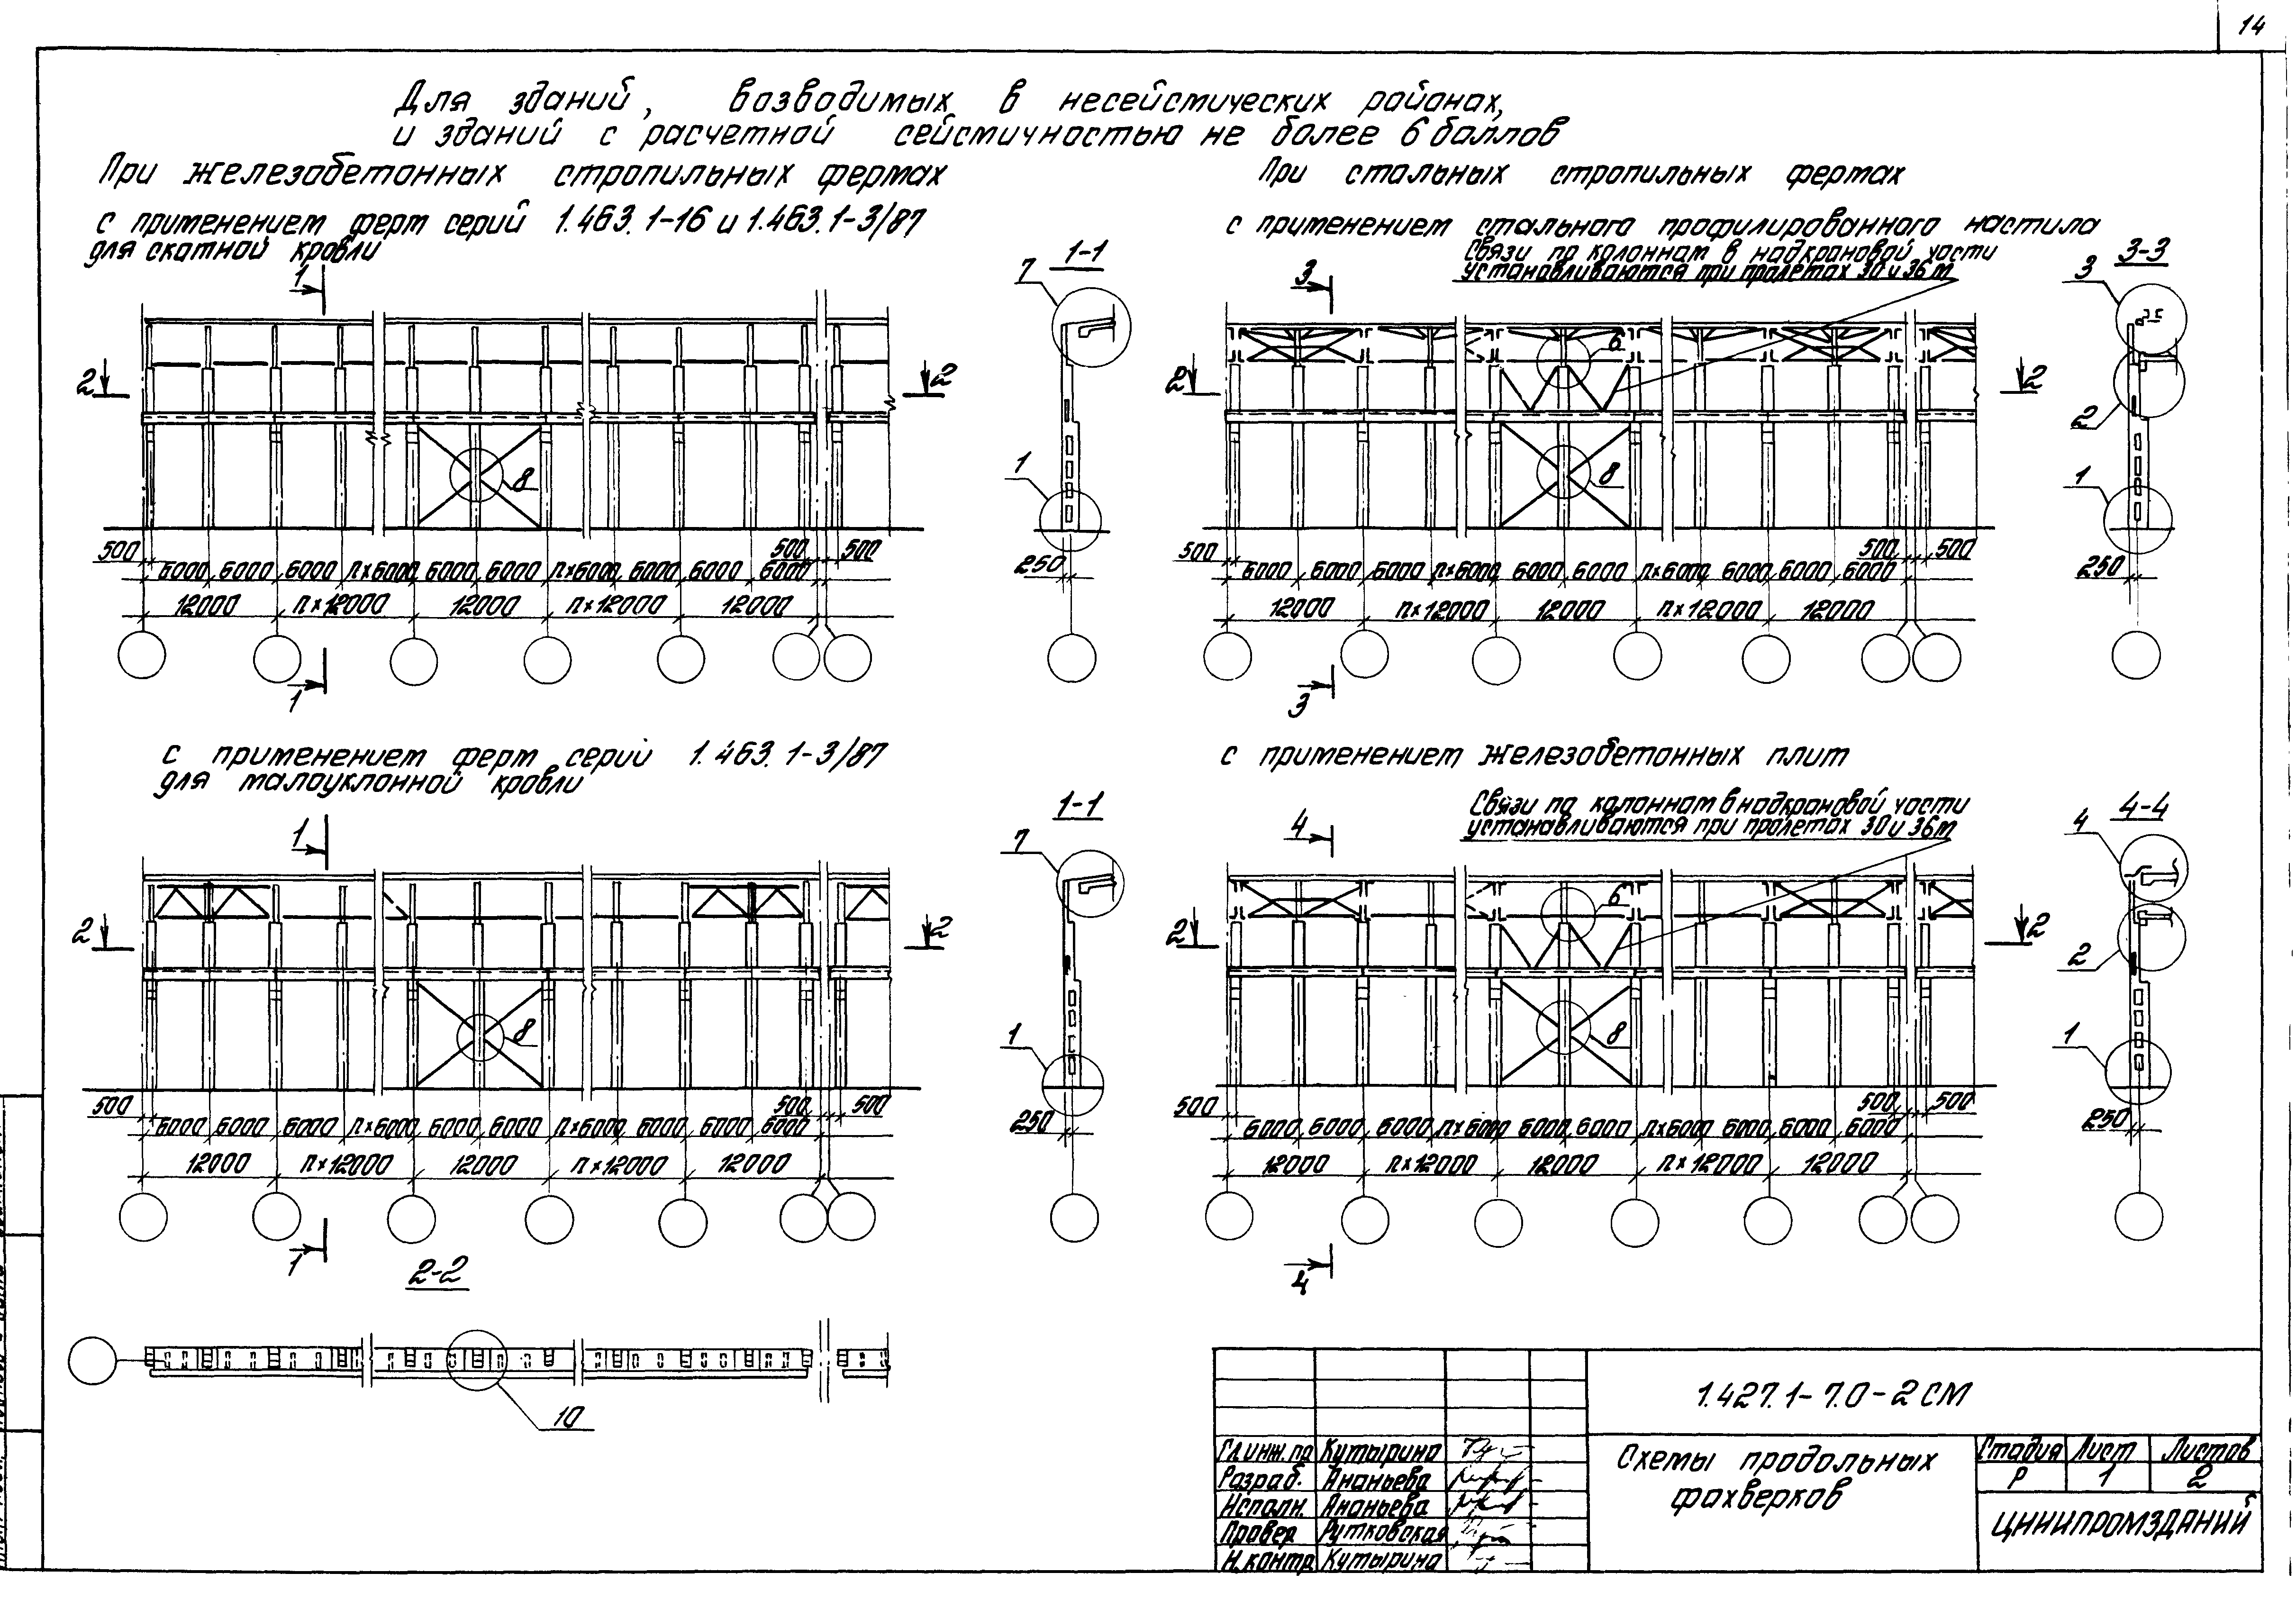 14
Для зданий, возводимых в несейсмических районах,
и зданий с расчетной сейсмичностью не более 6 баллов
При железобетонных стропильных фермах
с применением ферм серий 1.463.1-16 и 1.463.1-3/87
для скатной кровли
1
1-1
7
2
2
8
1
500
500
500
6000 6000 6000 п×6000 6000 6000 п×6000 6000 6000 6000
250
12000 п×12000 12000 п×12000 12000
1
При стальных стропильных фермах
с применением стального профилированного настила
Связи по колоннам в надкрановой части
устанавливаются при пролетах 30 и 36 м
3
3-3
3
6
2
2
2
8
1
500
500
500
6000 6000 6000 п×6000 6000 6000 п×6000 6000 6000 6000
250
12000 п×12000 12000 п×12000 12000
3
с применением ферм серий 1.463.1-3/87
для малоуклонной кровли
1
1-1
7
2
2
8
1
500
500
500
6000 6000 6000 п×6000 6000 6000 п×6000 6000 6000 6000
250
12000 п×12000 12000 п×12000 12000
1
с применением железобетонных плит
Связи по колоннам в надкрановой части
устанавливаются при пролетах 30 и 36 м
4
4-4
4
6
2
2
2
8
1
500
500
500
6000 6000 6000 п×6000 6000 6000 п×6000 6000 6000 6000
250
12000 п×12000 12000 п×12000 12000
4
2-2
10
1.427.1-7.0-2 СМ
Гл.инж.пр Кутырина
Разраб. Ананьева
Исполн. Ананьева
Провер Рутковская
Н.контр Кутырина
Схемы продольных
фахверков
Стадия Лист Листов
Р 1 2
ЦНИИПРОМЗДАНИЙ